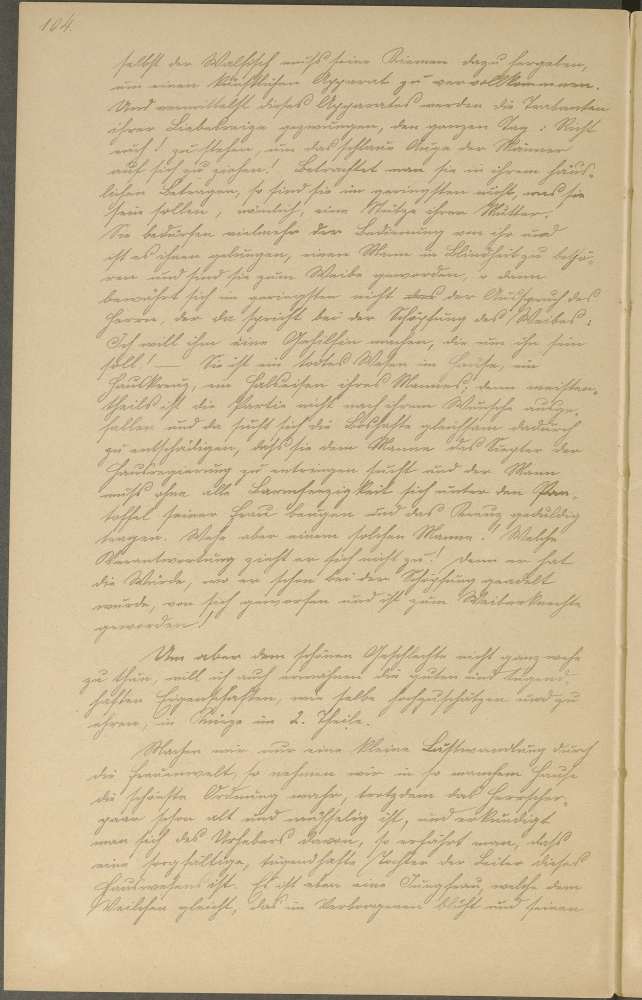 104.
selbst der Walfisch muß seine Riemen dazu hergeben,
um einen künstlichen Apparat zu vervollkommnen.
Und vermittelst dieses Apparates werden die Trabanten
ihrer Liebesreize gezwungen, den ganzen Tag: Richt
euch! zu stehen, um das schlaue Auge der Männer
auf sich zu ziehen! Betrachtet man sie in ihrem häus-
lichen Betragen, so sind sie im geringsten nicht, was sie
sein sollen, nämlich, eine Stütze ihrer Mutter.
Sie bedürfen vielmehr der Bedienung von ihr und
ist es ihnen gelungen, einen Mann in Blindheit zu bethö-
ren und sind sie zum Weibe geworden, o dann
bewährt sich im geringsten nicht der Ausspruch des
Herrn, der da spricht bei der Schöpfung des Weibes:
Ich will ihm eine Gehilfin machen, die um ihn sein
soll! — Sie ist ein todtes Wesen im Hause, ein
Hauskreuz, ein Halseisen ihres Mannes; denn meisten-
theils ist die Partie nicht nach ihrem Wunsche ausge-
fallen und da sucht sich die Boshafte gleichsam dadurch
zu entschädigen, daß sie dem Manne das Szepter der
Hausregierung zu entringen sucht und der Mann
muß ohne alle Barmherzigkeit sich unter den Pan-
toffel seiner Frau beugen und das Kreuz geduldig
tragen. Wehe aber einem solchen Manne! Welche
Verantwortung zieht er sich nicht zu! Denn er hat
die Würde, wo er schon bei der Schöpfung geadelt
wurde, von sich geworfen und ist zum Weiberknechte
geworden!
Um aber dem schönen Geschlechte nicht ganz wehe
zu thun, will ich auch erwähnen die guten und tugend-
haften Eigenschaften, wie selbe hochzuschätzen und zu
ehren, in Kürze im 2. Theile.
Machen wir nur eine kleine Lustwandlung durch
die Frauenwelt, so nehmen wir in so manchem Hause
die schönste Ordnung wahr, trotzdem das Herrscher-
paar schon alt und mühselig ist, und erkundigt
man sich des Urhebers davon, so erfährt man, daß
eine sorgfältige, tugendhafte Tochter der Leiter dieses
Hauswesens ist. Es ist eben eine Jungfrau, welche dem
Veilchen gleicht, das im Verborgenen blüht und seinen